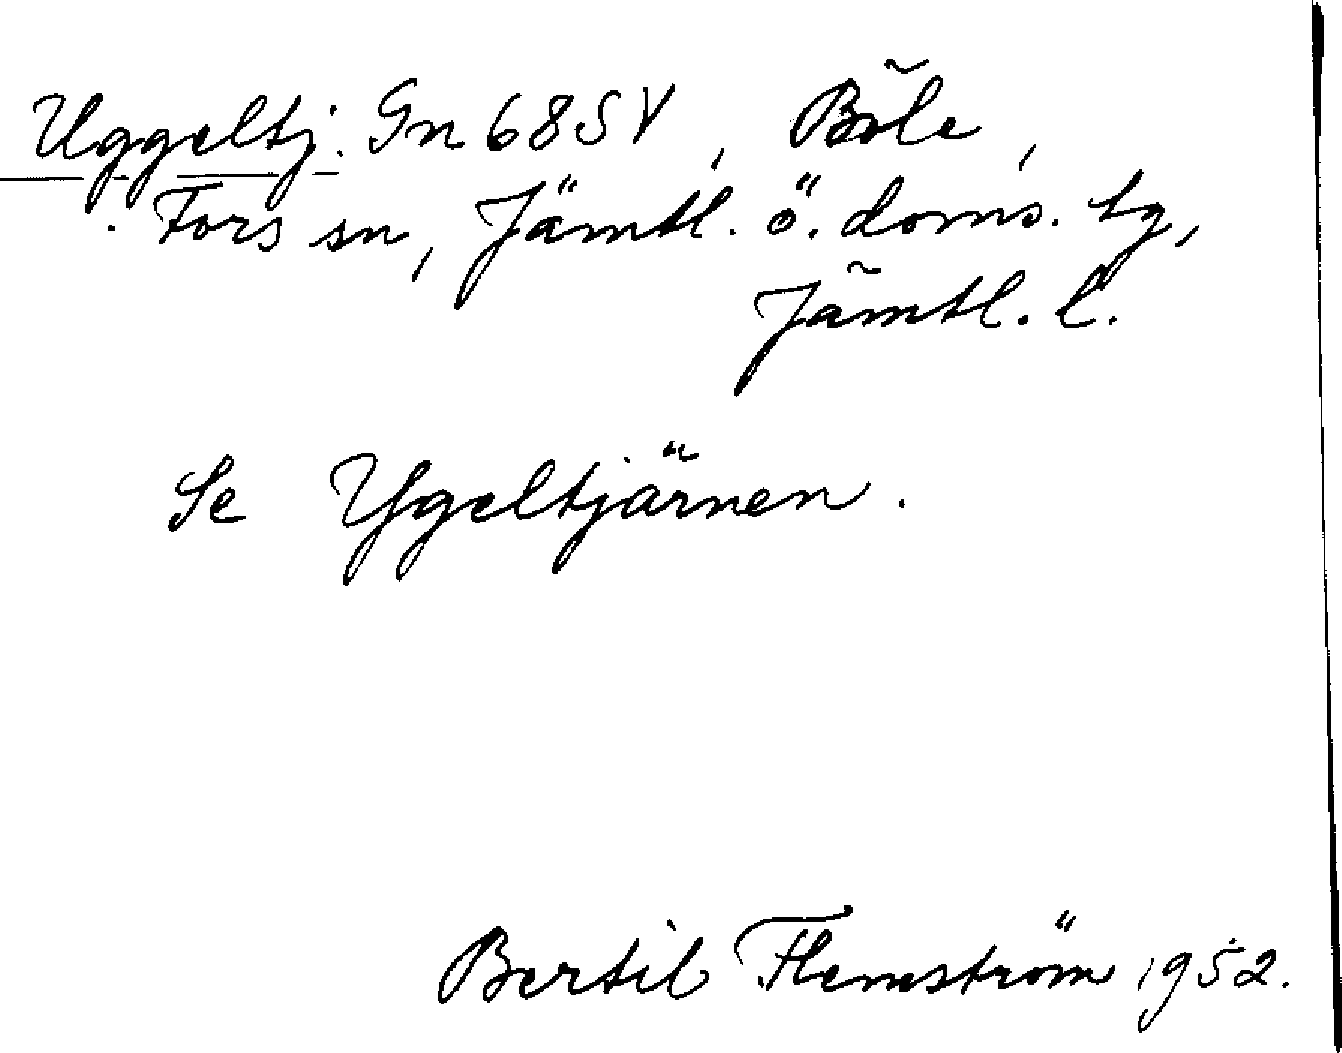 Uggeltj. Gn 68 SV, Böle,
Fors sn, Jämtl. ö. doms. tg,
Jämtl. l.
Se Ygeltjärnen.
Bertil Flemström 1952.